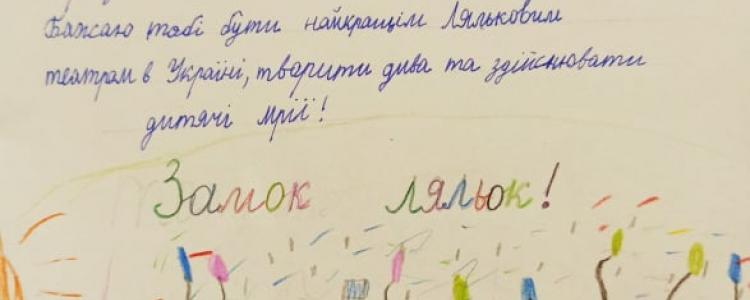 Бажаю тобі бути найкращім Ляльковим
театром в Україні, тварити дива та здійснювати
дитячі мрії!
Замок ляльок!